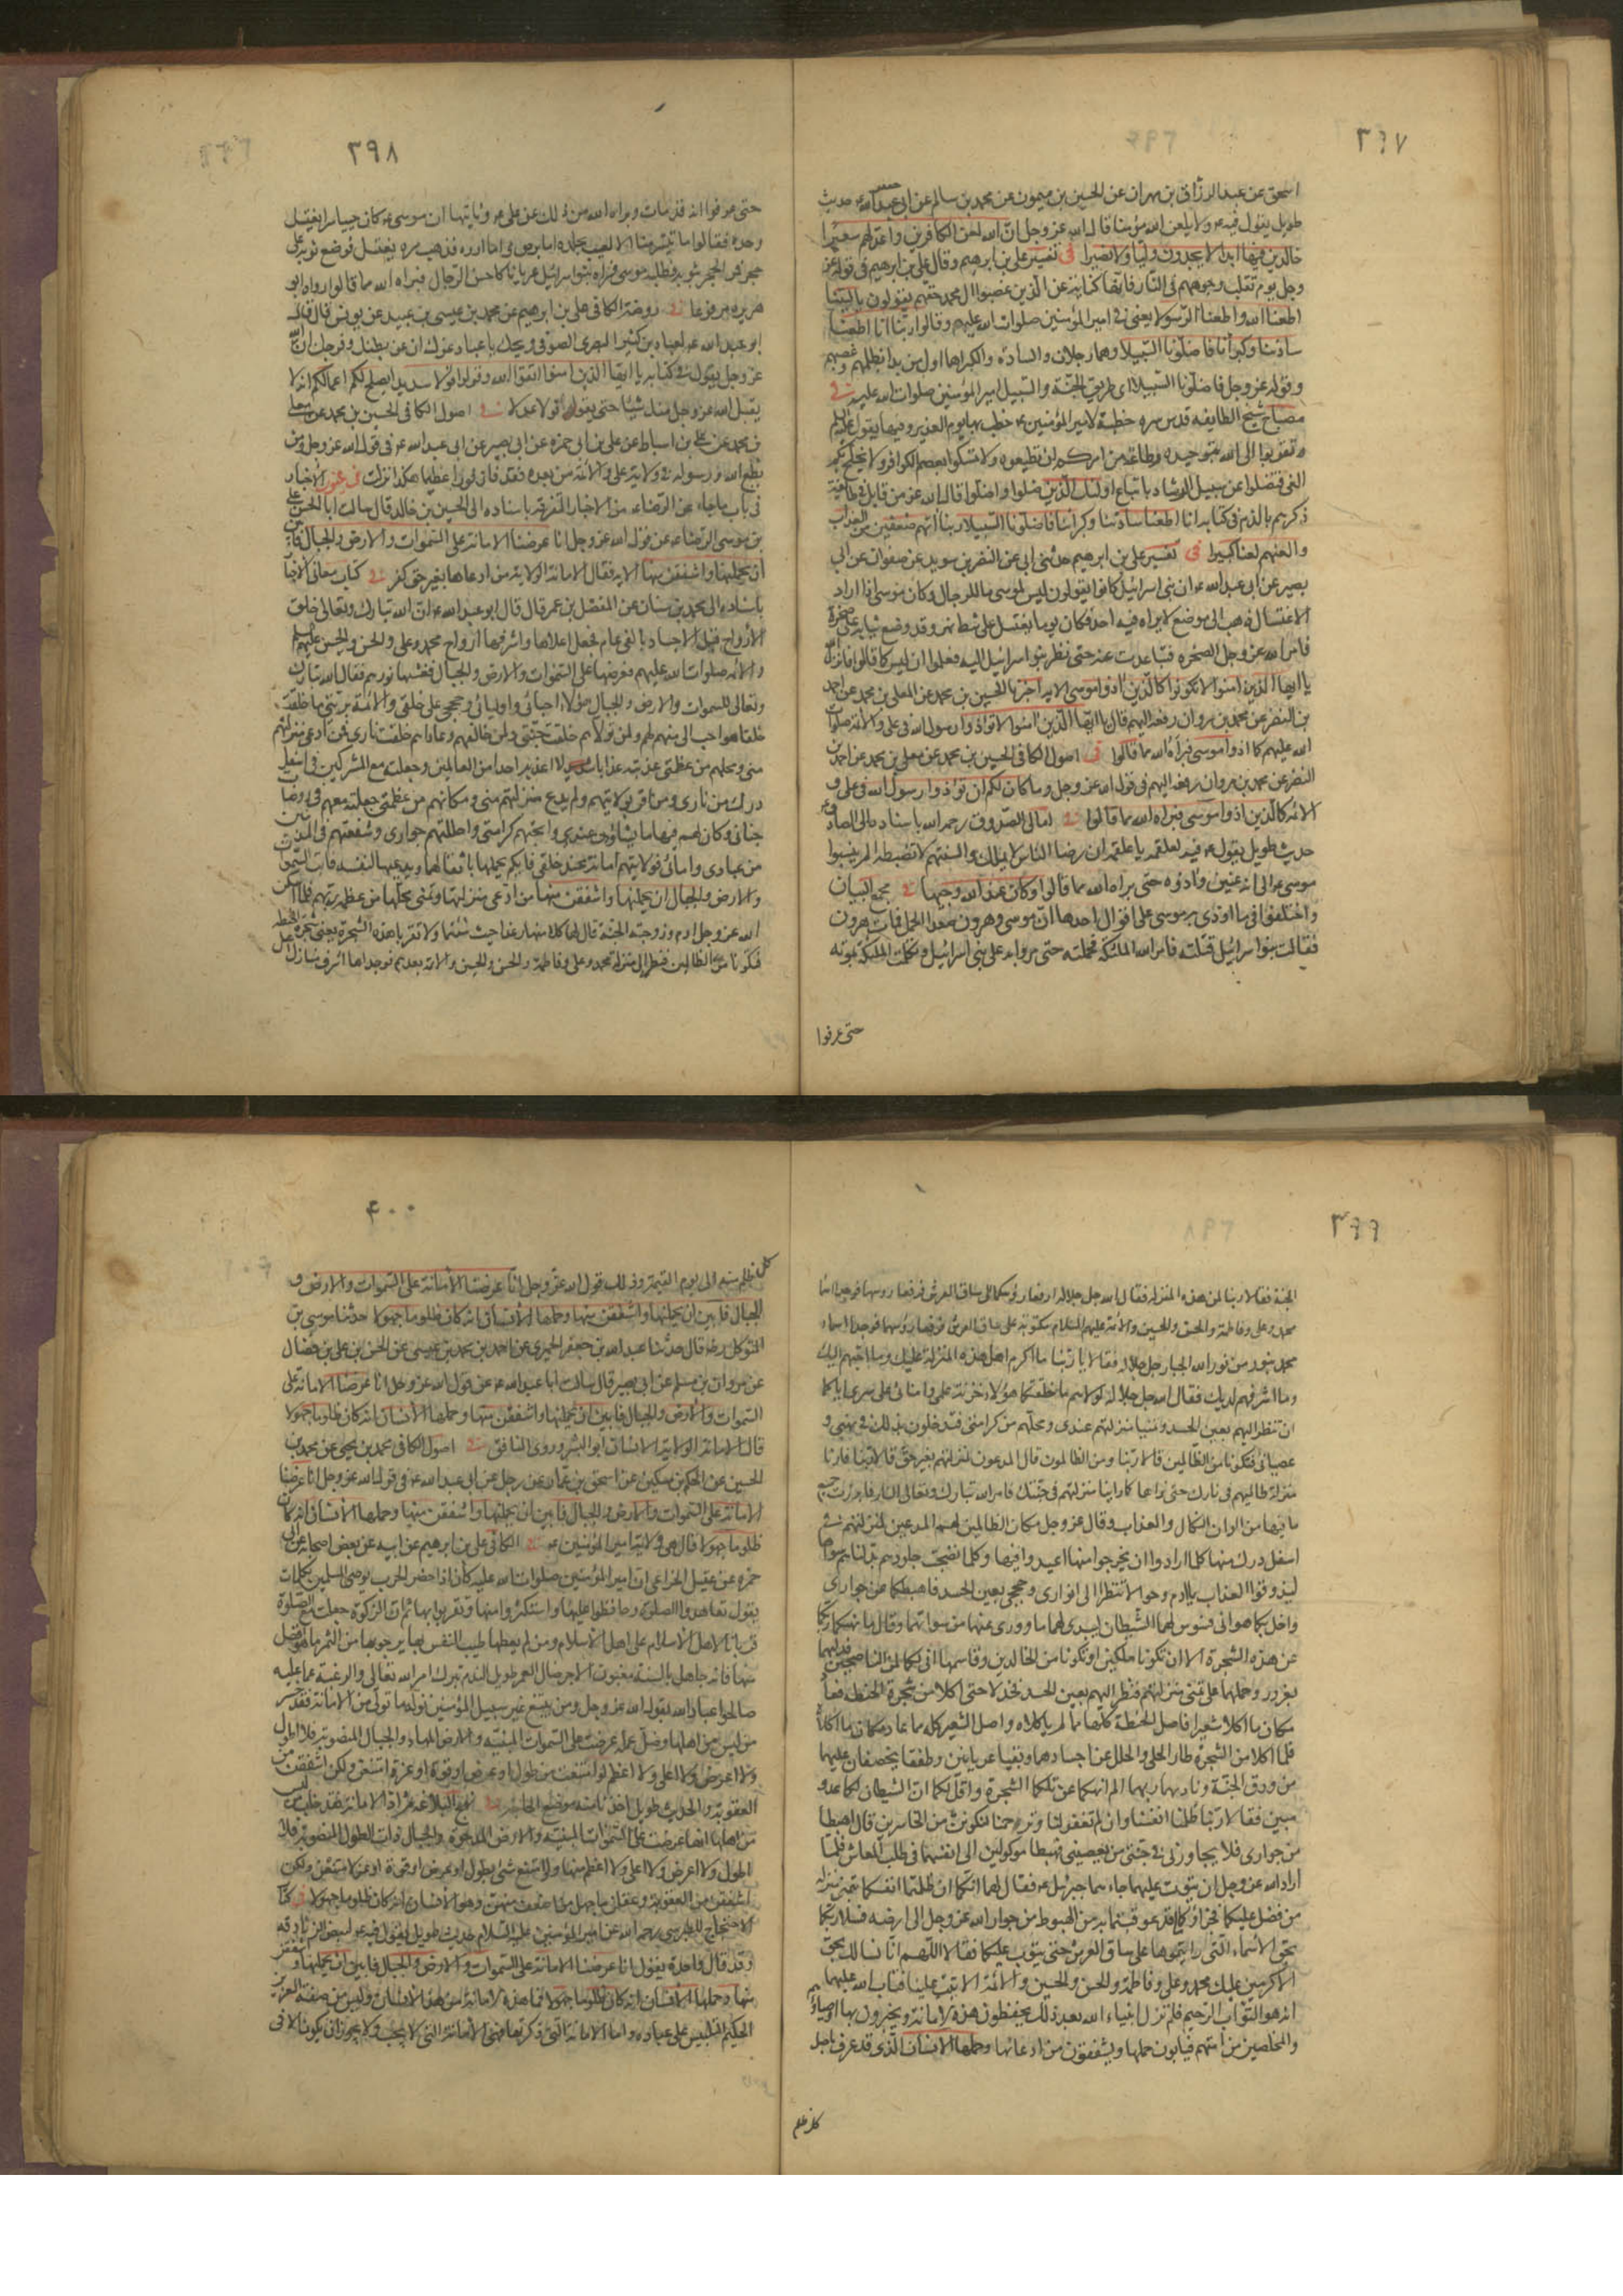 ٣٩٧
اسحق عن عبد الرزاق بن مهران عن الحسين بن ميمون عن محمد بن سالم عن ابى جعفر ع حديث
طويل يقول فيه ع ولا يلعن الله مؤمنا قال الله عز وجل ان الله لعن الكافرين واعد لهم سعيرا
خالدين فيها ابدا لا يجدون وليا ولا نصيرا فى تفسير على بن ابرهيم وقال على بن ابرهيم فى قوله عز
وجل يوم تقلب وجوههم فى النار فانها كناية عن الذين غصبوا ال محمد حقهم يقولون يا ليتنا
اطعنا الله واطعنا الرسولا يعنى فى امير المؤمنين صلوات الله عليه وقالوا ربنا انا اطعنا
سادتنا وكبراءنا فاضلونا السبيلا وهما رجلان والسادة والكبراء هما اول من بدا بظلمهم وغصبهم
وقوله عز وجل فاضلونا السبيلا اى طريق الجنة والسبيل امير المؤمنين صلوات الله عليه فى
مصباح شيخ الطايفه قدس سره خطبة لامير المؤمنين ع خطب بها يوم الغدير وفيها يقول عليه السلم
وتقربوا الى الله بتوحيده وطاعة من امركم ان تطيعوه ولا تمسكوا بعصم الكوافر ولا يخلج بكم
الغى فتضلوا عن سبيل الرشاد باتباع اولئك الذين ضلوا واضلوا قال الله عز من قابل فى طايفة
ذكرهم بالذم فى كتابه انا اطعنا سادتنا وكبراءنا فاضلونا السبيلا ربنا اتهم ضعفين من العذاب
والعنهم لعنا كبيرا فى تفسير على بن ابرهيم حدثنى ابى عن النضر بن سويد عن صفوان عن ابى
بصير عن ابى عبد الله ع ان بنى اسرائيل كانوا يقولون ليس لموسى ما للرجال وكان موسى اذا اراد
الاغتسال ذهب الى موضع لا يراه فيه احد فكان يوما يغتسل على شط نهر وقد وضع ثيابه على صخرة
فامر الله عز وجل الصخره فتباعدت عنه حتى نظر بنو اسرائيل اليه فعلموا ان ليس كما قالوا فانزل الله
يا ايها الذين امنوا لا تكونوا كالذين اذوا موسى الايه اخبرنا الحسين بن محمد عن المعلى بن محمد عن احمد
بن النضر عن محمد بن مروان رفعه اليهم قال يا ايها الذين امنوا لا تؤذوا رسول الله فى على والائمه صلوات
الله عليهم كما اذوا موسى فبراه الله مما قالوا فى اصول الكافى الحسين بن محمد عن معلى بن محمد عن احمد بن
النضر عن محمد بن مروان رفعه اليهم فى قول الله عز وجل وما كان لكم ان تؤذوا رسول الله فى على و
الائمه كالذين اذوا موسى فبراه الله مما قالوا فى امالى الصدوق رحمه الله باسناده الى الصادق ع
حديث طويل يقول ع فيه لعلقمه يا علقمه ان رضا الناس لا يملك والسنتهم لا تضبط الم ينسبوا
موسى ع الى انه عنين واذوه حتى براه الله مما قالوا وكان عند الله وجيها فى مجمع البيان
واختلفوا فيما اوذى به موسى على اقوال احدها ان موسى وهرون صعدا الجبل فمات هرون
فقالت بنوا اسرائيل قتلته فامر الله الملئكة فحملته حتى مروا به على بنى اسرائيل وتكلمت الملئكة بموته
حتى عرفوا
٣٩٨
حتى عرفوا انه قد مات وبراه الله من ذلك عن على ع وثانيها ان موسى ع كان حييا ستيرا يغتسل
وحده فقالوا ما تستر منا الا لعيب بجلده اما برص واما ادره فذهب مره يغتسل فوضع ثوبه على
حجر فمر الحجر بثوبه فطلبه موسى فراه بنوا اسرائيل عريانا كاحسن الرجال فبراه الله مما قالوا رواه ابو
هريره مرفوعا فى روضة الكافى على بن ابرهيم عن محمد بن عيسى بن عبيد عن يونس قال قال
ابو عبد الله ع لعباد بن كثير البصرى الصوفى ويحك يا عباد غرك ان عف بطنك وفرجك ان الله
عز وجل يقول فى كتابه يا ايها الذين امنوا اتقوا الله وقولوا قولا سديدا يصلح لكم اعمالكم انه لا
يقبل الله عز وجل منك شيئا حتى يقول قولا عدلا فى اصول الكافى الحسين بن محمد عن معلى
بن محمد عن على بن اسباط عن على بن ابى حمزه عن ابى بصير عن ابى عبد الله ع فى قول الله عز وجل ومن
يطع الله ورسوله فى ولاية على والائمة من بعده فقد فاز فوزا عظيما هكذا نزلت فى عيون الاخبار
فى باب ما جاء عن الرضا ع من الاخبار المتفرقة باسناده الى الحسين بن خالد قال سالت ابا الحسن على
بن موسى الرضا ع عن قول الله عز وجل انا عرضنا الامانة على السموات والارض والجبال فابين
ان يحملنها واشفقن منها الايه فقال الامانة الولاية من ادعاها بغير حق كفر فى كتاب معانى الاخبار
باسناده الى محمد بن سنان عن المفضل بن عمر قال قال ابو عبد الله ع ان الله تبارك وتعالى خلق
الارواح قبل الاجساد بالفى عام فجعل اعلاها واشرفها ارواح محمد وعلى والحسن والحسين عليهم السلم
والائمه صلوات الله عليهم فعرضها على السموات والارض والجبال فغشيها نورهم فقال الله تبارك
وتعالى للسموات والارض والجبال هؤلاء احبائى واوليائى وحججى على خلقى والائمة بريتى ما خلقت
خلقا هو احب الى منهم لهم ولمن تولاهم خلقت جنتى ولمن خالفهم وعاداهم خلقت نارى فمن ادعى منزلتهم
منى ومحلهم من عظمتى عذبته عذابا لا اعذبه احدا من العالمين وجعلته مع المشركين فى اسفل
درك من نارى ومن اقر بولايتهم ولم يدع منزلتهم منى ومكانهم من عظمتى جعلته معهم فى روضات
جنانى وكان لهم فيها ما يشاؤن عندى وابحتهم كرامتى واحللتهم جوارى وشفعتهم فى المذنبين
من عبادى وامائى فولايتهم امانة عند خلقى فايكم يحملها باثقالها ويدعيها لنفسه فابت السموات
والارض والجبال ان يحملنها واشفقن منها من ادعى منزلتها وتمنى محلها من عظمة ربهم فلما اسكن
الله عز وجل ادم وزوجته الجنة قال لهما كلا منها رغدا حيث شئتما ولا تقربا هذه الشجرة يعنى شجرة الحنطه
فتكونا من الظالمين فنظرا الى منزلة محمد وعلى وفاطمة والحسن والحسين والائمه بعدهم فوجداها اشرف منازل اهل
٣٩٩
الجنة فقالا ربنا لمن هذه المنزله فقال الله جل جلاله ارفعا رؤسكما الى ساق العرش فرفعا رؤسهما فوجدا اسماء
محمد وعلى وفاطمة والحسن والحسين والائمة عليهم السلام مكتوبة على ساق العرش فرفعا رؤسهما فوجدا اسماء
محمد بنور من نور الله الجبار جل جلاله فقالا يا ربنا ما اكرم اهل هذه المنزلة عليك وما احبهم اليك
وما اشرفهم لديك فقال الله جل جلاله لولاهم ما خلقتكما هؤلاء خزنة علمى وامنائى على سرى اياكما
ان تنظرا اليهم بعين الحسد وتتمنيا منزلتهم عندى ومحلهم من كرامتى فتدخلون بذلك فى نهيى و
عصيانى فتكونا من الظالمين قالا ربنا ومن الظالمون قال المدعون لمنزلتهم بغير حق قالا ربنا فارنا
منزلة ظالميهم فى نارك حتى نراها كما راينا منزلتهم فى جنتك فامر الله تبارك وتعالى النار فابرزت جميع
ما فيها من الوان النكال والعذاب وقال عز وجل مكان الظالمين لهم المدعين لمنزلتهم فى
اسفل درك منها كلما ارادوا ان يخرجوا منها اعيدوا فيها وكلما نضجت جلودهم بدلناهم سواها
ليذوقوا العذاب يا ادم وحوا لا تنظرا الى انوارى وحججى بعين الحسد فاهبطكما من جوارى
واحل بكما هوانى فوسوس لهما الشيطان ليبدى لهما ما وورى عنهما من سواتهما وقال ما نهيكما ربكما
عن هذه الشجرة الا ان تكونا ملكين او تكونا من الخالدين وقاسمهما انى لكما لمن الناصحين فدليهما
بغرور وحملهما على تمنى منزلتهم فنظرا اليهم بعين الحسد فخذلا حتى اكلا من شجرة الحنطه فعاد
مكان ما اكلا شعيرا فاصل الحنطة كلها مما لم ياكلاه واصل الشعير كله مما عاد مكان ما اكلاه
فلما اكلا من الشجرة طار الحلى والحلل عن اجسادهما وبقيا عريانين وطفقا يخصفان عليهما
من ورق الجنة وناديهما ربهما الم انهكما عن تلكما الشجرة واقل لكما ان الشيطان لكما عدو
مبين فقالا ربنا ظلمنا انفسنا وان لم تغفر لنا وترحمنا لنكونن من الخاسرين قال اهبطا
من جوارى فلا يجاورنى فى جنتى من يعصينى فهبطا موكولين الى انفسهما فى طلب المعاش فلما
اراد الله عز وجل ان يتوب عليهما جاءهما جبرئيل ع فقال لهما انكما انما ظلمتما انفسكما بتمنى منزلة
من فضل عليكما فجزاؤكما قد عوقبتما به من الهبوط من جوار الله عز وجل الى ارضه فسلا ربكما
بحق الاسماء التى رايتموها على ساق العرش حتى يتوب عليكما فقالا اللهم انا نسالك بحق
الاكرمين عليك محمد وعلى وفاطمة والحسن والحسين والائمة الا تبت علينا فتاب الله عليهما
انه هو التواب الرحيم فلم تزل انبياء الله بعد ذلك يحفظون هذه الامانة ويخبرون بها اوصياءهم
والمخلصين من امتهم فيابون حملها ويشفقون من ادعائها وحملها الانسان الذى قد عرف باصل
كل ظلم
٤٠٠
كل ظلم منه الى يوم القيمة وذلك قول الله عز وجل انا عرضنا الامانة على السموات والارض و
الجبال فابين ان يحملنها واشفقن منها وحملها الانسان انه كان ظلوما جهولا حدثنا موسى بن
المتوكل رضه قال حدثنا عبد الله بن جعفر الحميرى عن احمد بن محمد بن عيسى عن الحسن بن على بن فضال
عن مروان بن مسلم عن ابى بصير قال سالت ابا عبد الله ع عن قول الله عز وجل انا عرضنا الامانة على
السموات والارض والجبال فابين ان يحملنها واشفقن منها وحملها الانسان انه كان ظلوما جهولا
قال الامانة الولاية والانسان ابو الشرور المنافق فى اصول الكافى محمد بن يحيى عن محمد بن
الحسين عن الحكم بن مسكين عن اسحق بن عمار عن رجل عن ابى عبد الله ع فى قول الله عز وجل انا عرضنا
الامانة على السموات والارض والجبال فابين ان يحملنها واشفقن منها وحملها الانسان انه كان
ظلوما جهولا قال هى ولاية امير المؤمنين ع فى الكافى على بن ابرهيم عن ابيه عن بعض اصحابه عن ابى
حمزه عن عقيل الخزاعى ان امير المؤمنين صلوات الله عليه كان اذا حضر الحرب يوصى المسلمين بكلمات
يقول تعاهدوا الصلوة وحافظوا عليها واستكثروا منها وتقربوا بها ثم ان الزكوة جعلت مع الصلوة
قربانا لاهل الاسلام على اهل الاسلام ومن لم يعطها طيب النفس بها يرجو بها من الثمن ما هو افضل
منها فانه جاهل بالسنة مغبون الاجر ضال العمر طويل الندم بترك امر الله تعالى والرغبة عما عليه
صالحوا عباد الله يقول الله عز وجل ومن يتبع غير سبيل المؤمنين نوله ما تولى من الامانة فقد خسر
من ليس من اهلها وضل عمله عرضت على السموات المبنية والارض المهاد والجبال المنصوبة فلا اطول
ولا اعرض ولا اعلى ولا اعظم لو امتنعت من طول او عرض او قوة او عزة امتنعن ولكن اشفقن من
العقوبة والحديث طويل اخذنا منه موضع الحاجة فى نهج البلاغه ثم اداء الامانة فقد خاب من ليس
من اهلها انها عرضت على السموات المبنية والارض المدحوة والجبال ذات الطول المنصوبة فلا
اطول ولا اعرض ولا اعلى ولا اعظم منها ولو امتنع شئ بطول او عرض او قوة او عز لامتنعن ولكن
اشفقن من العقوبة وعقلن ما جهل من هو اضعف منهن وهو الانسان انه كان ظلوما جهولا فى كتاب
الاحتجاج للطبرسى رحمه الله عن امير المؤمنين عليه السلام حديث طويل يقول فيه ع لبعض الزنادقه
وقد قال واجده يقول انا عرضنا الامانة على السموات والارض والجبال فابين ان يحملنها واشفقن
منها وحملها الانسان انه كان ظلوما جهولا فما هذه الامانة ومن هذا الانسان وليس من صفة العزيز
الحكيم التلبيس على عباده واما الامانة التى ذكرتها فهى الامانة التى لا يجب ولا يجوز ان يكون الا فى